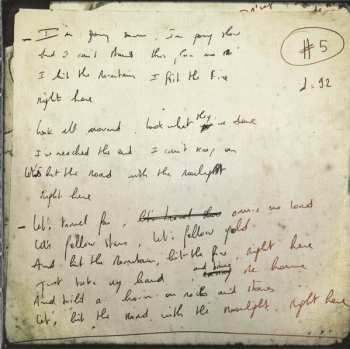 #5
I'm going down, I'm going slow
And I can't stand this,
I hit the mountain I hit the fire
right here
♩=92
Look all around, look what they've done
I've reached the end I can't keep on
Let's hit the road with the moonlight
right here
Let's travel far, on a road
Let's follow stars, Let's follow gold.
And hit the mountain, hit the fire, right here
Just take my hand and bring me home
And build a home on rocks and stones
Let's hit the road with the moonlight. right here